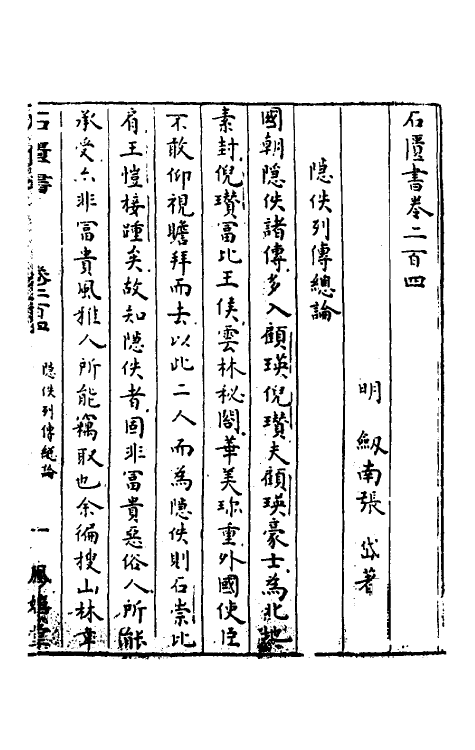 石匱書卷二百四
明 劒南張 岱著
隱佚列傳總論
國朝隱佚諸傳多入顧瑛倪瓚夫顧瑛豪士為北地
素封倪瓚冨比王侯雲林秘閣華美珎重外國使臣
不敢仰視瞻拜而去以此二人而為隱佚則石崇比
肩王愷接踵矣故知隱佚者固非冨貴惡俗人所能
承受亦非冨貴風雅人所能竊取也余徧搜山林草
石匱書 卷二百四 隱佚列傳總論 一 鳳嬉堂